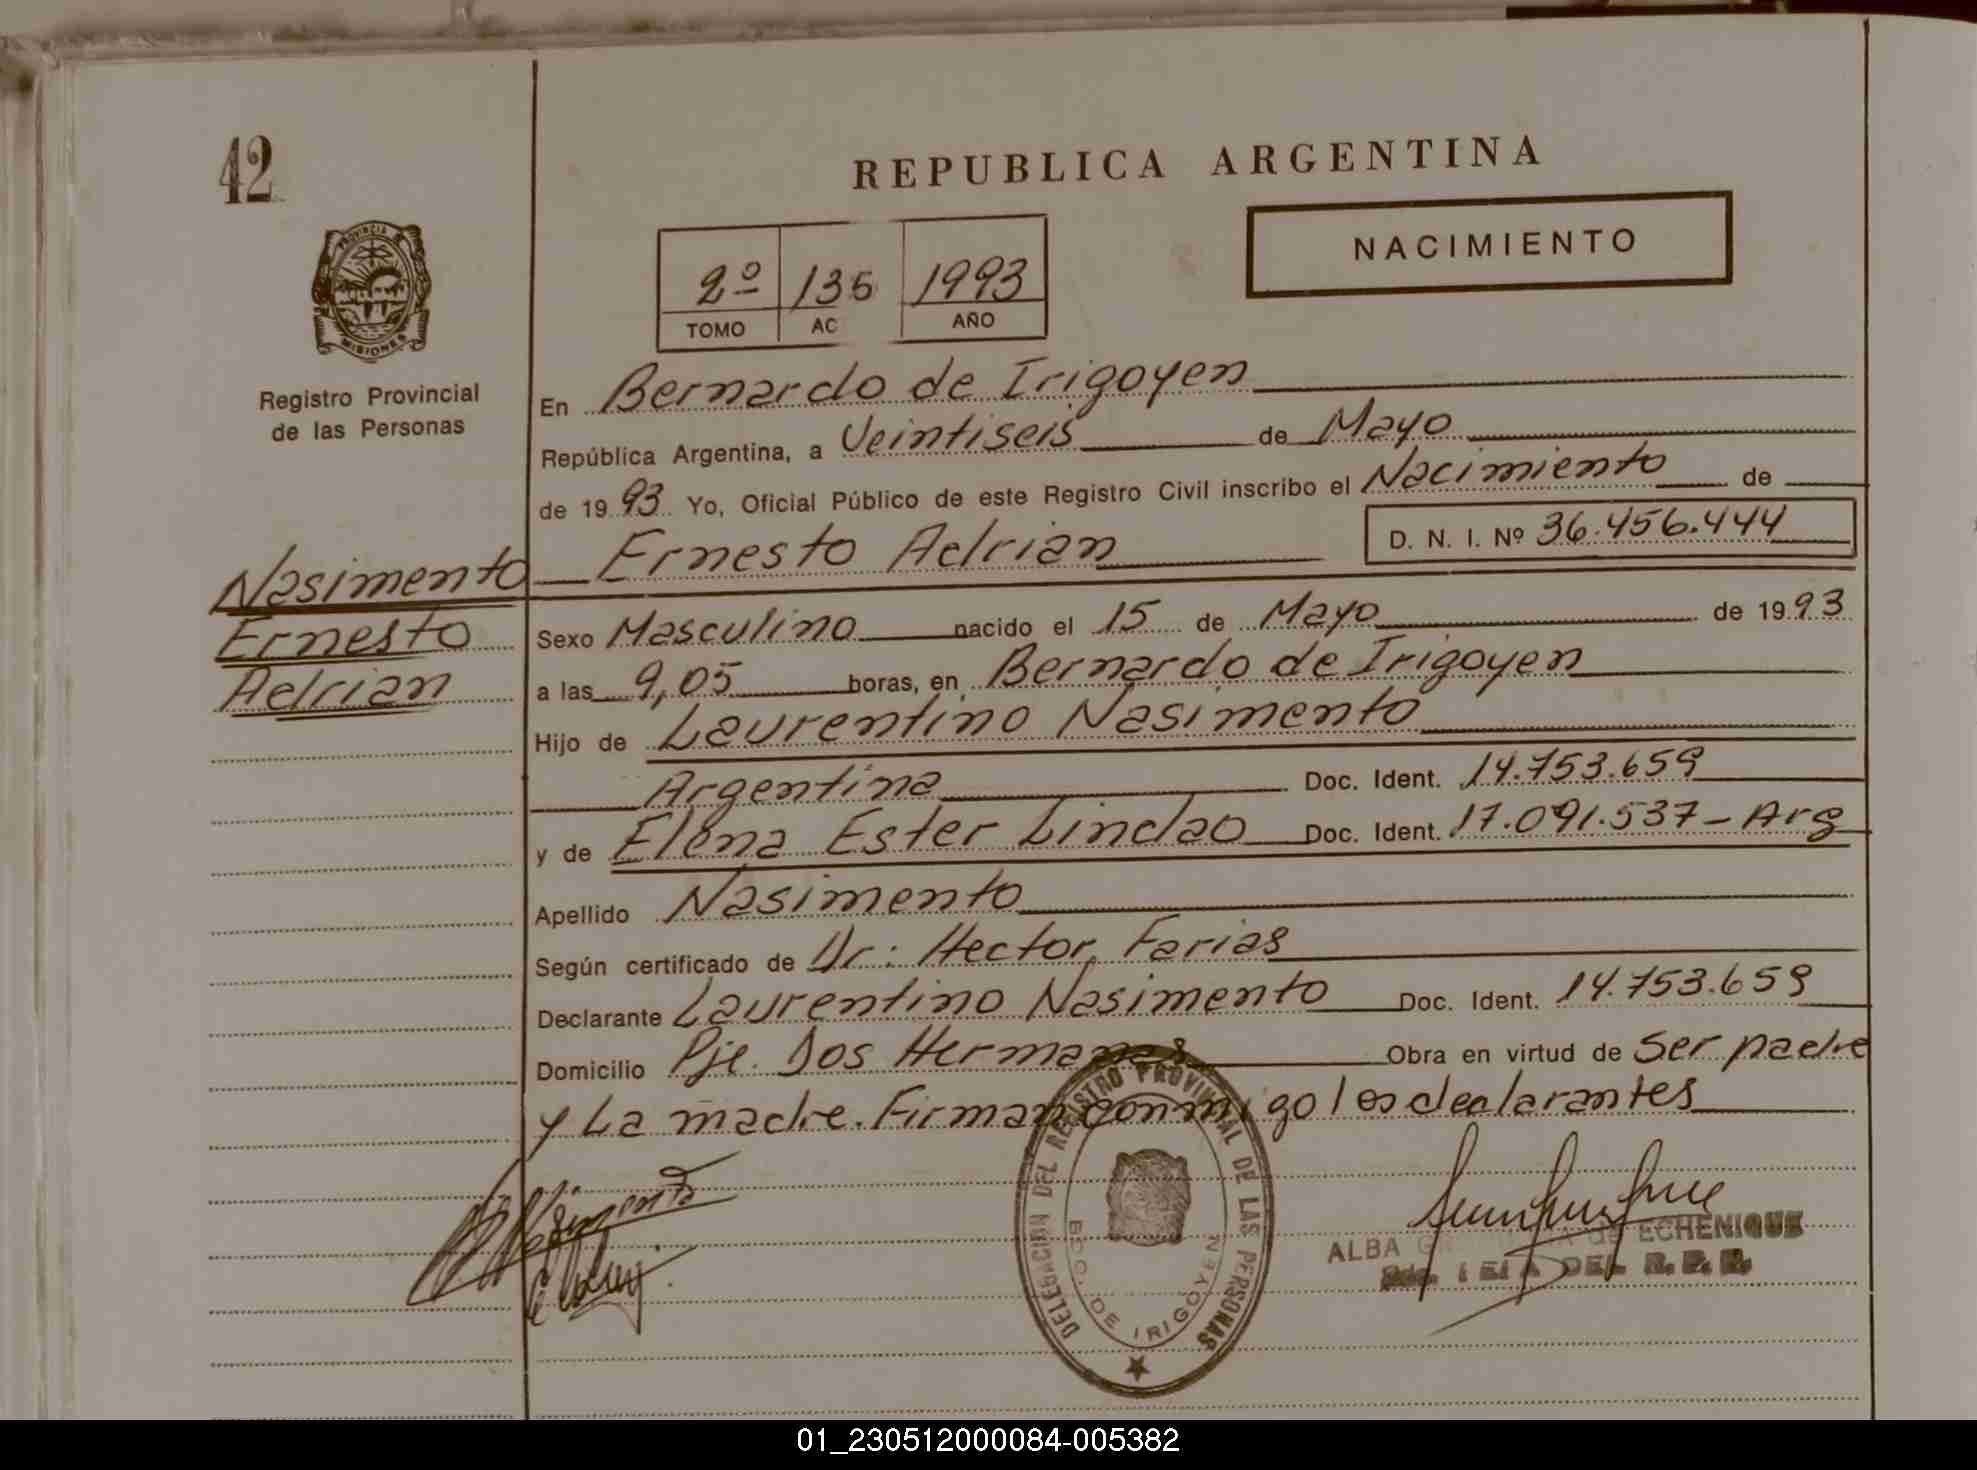 42
REPUBLICA ARGENTINA
NACIMIENTO
2º 135 1993
TOMO AC AÑO
PROVINCIA
MISIONES
Registro Provincial
de las Personas
En Bernardo de Irigoyen
República Argentina, a Veintiseis de Mayo
de 1993 Yo, Oficial Público de este Registro Civil inscribo el Nacimiento de
Ernesto Adrian D. N. I. Nº 36.456.444
Nasimento
Ernesto
Adrian
Sexo Masculino nacido el 15 de Mayo de 1993
a las 9,05 horas, en Bernardo de Irigoyen
Hijo de Laurentino Nasimento
Argentina Doc. Ident. 14.753.659
y de Elena Ester Lindao Doc. Ident. 17.091.537 - Arg
Apellido Nasimento
Según certificado de Dr: Hector Farias
Declarante Laurentino Nasimento Doc. Ident. 14.753.659
Domicilio Pje. Dos Hermanas Obra en virtud de Ser padre
y La madre. Firman conmigo los declarantes
DELEGACION DEL REGISTRO PROVINCIAL DE LAS PERSONAS
BDO. DE IRIGOYEN
ALBA de ECHENIQUE
DEL R.P.P.
01_230512000084-005382